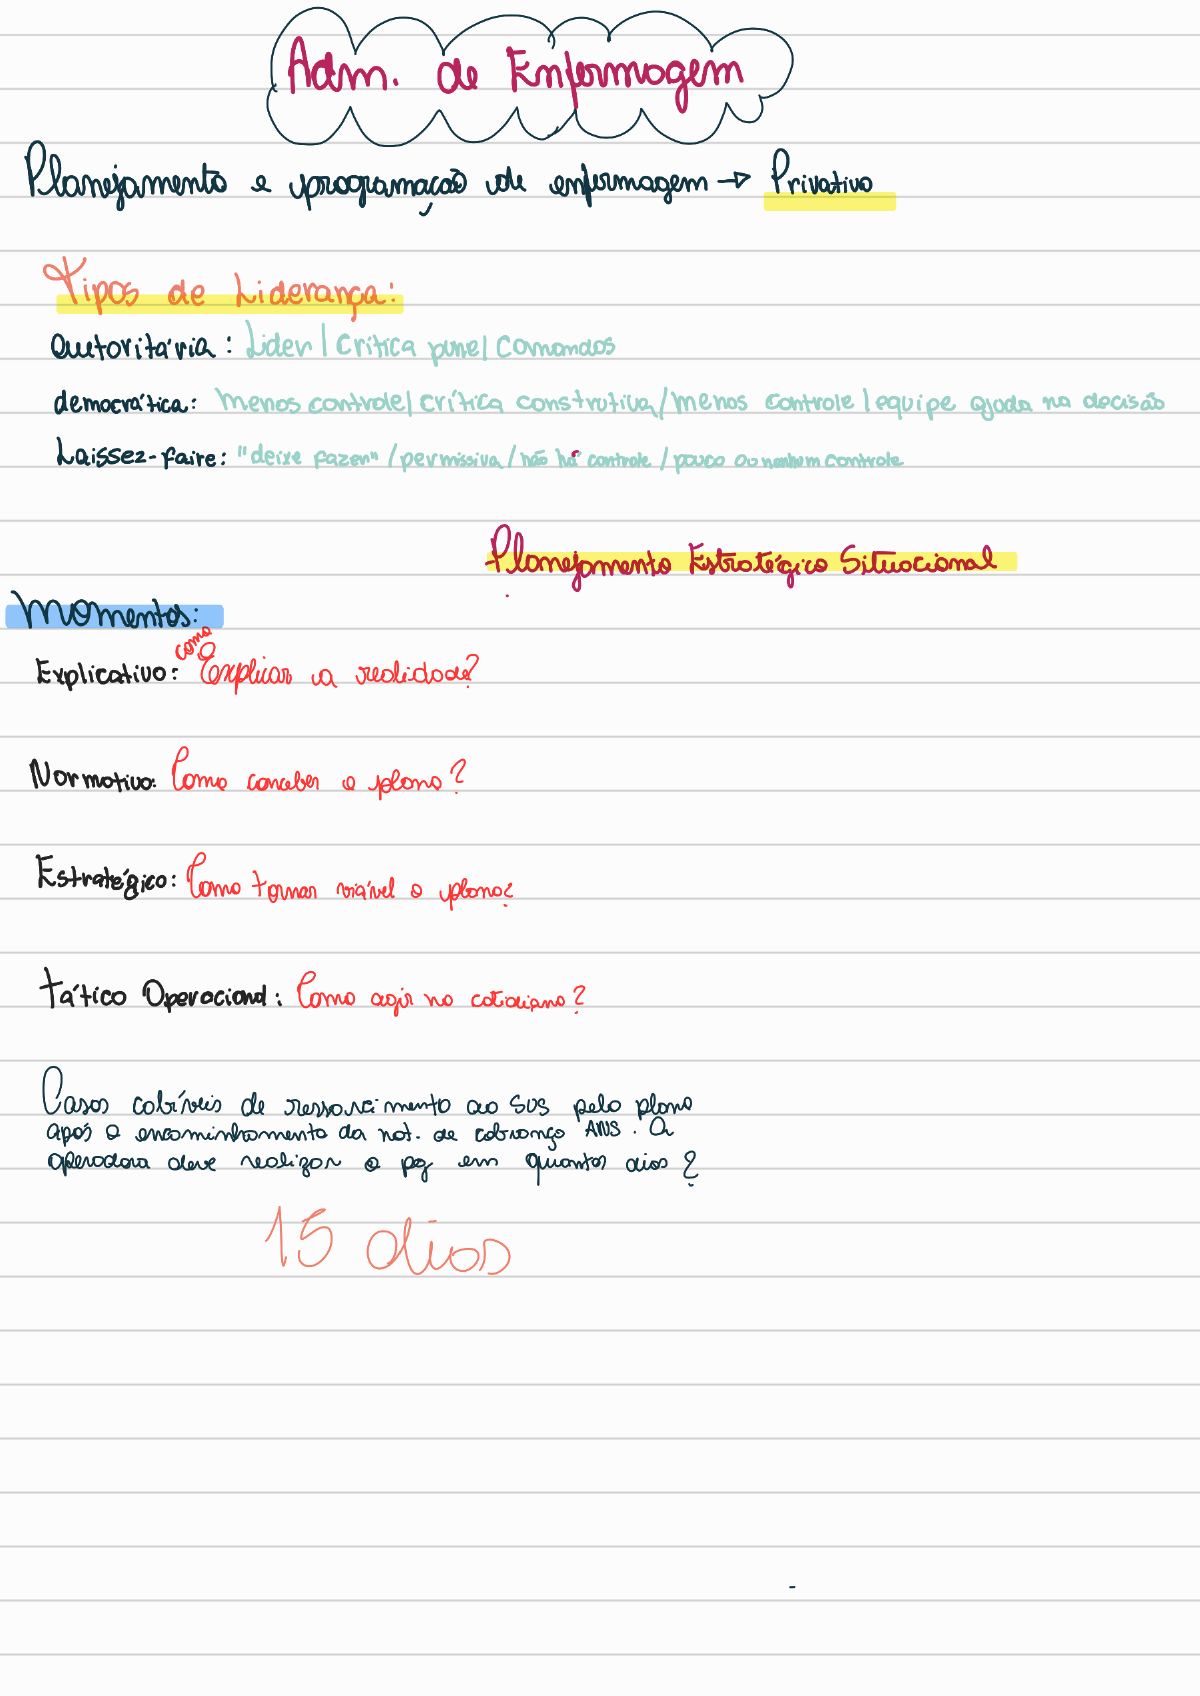 Adm. de Enfermagem
Planejamento e programação de enfermagem → Privativo
Tipos de Liderança:
Autoritária: Lider/Crítica pune/Comandos
democrática: Menos controle/crítica construtiva/menos controle/equipe ajuda na decisão
Laissez-faire: "deixe fazer"/permissiva/não há controle/pouco ou nenhum controle
Planejamento Estratégico Situacional
Momentos:
Explicativo: como explicar a realidade?
Normativo: Como conceber o plano?
Estratégico: Como tornar viável o plano?
Tático Operacional: Como agir no cotidiano?
Casos cobríveis de ressorcimento ao SUS pelo plano
após o encaminhamento da not. de cobrança ANS. A
operadora deve realizar o pg em quantos dias?
15 dias